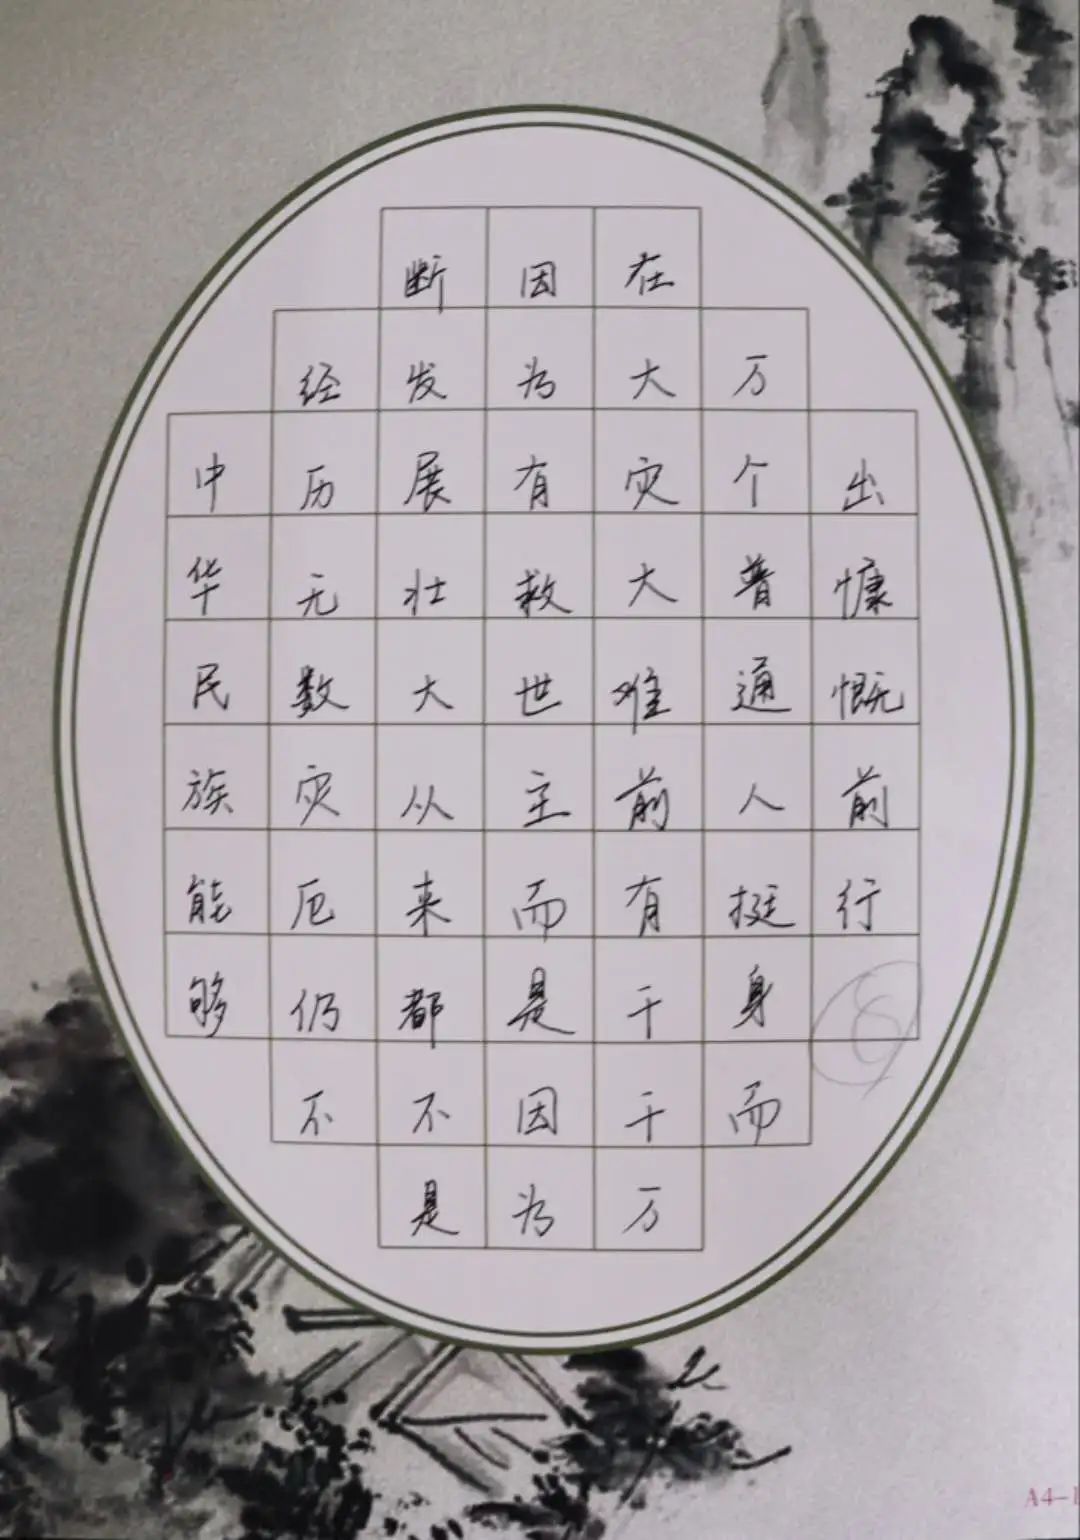 中华民族能够
经历无数灾厄仍不
断发展壮大从来都不是
因为有救世主而是因为
在大灾大难前有千千万
万个普通人挺身而
出慷慨前行
A4-1